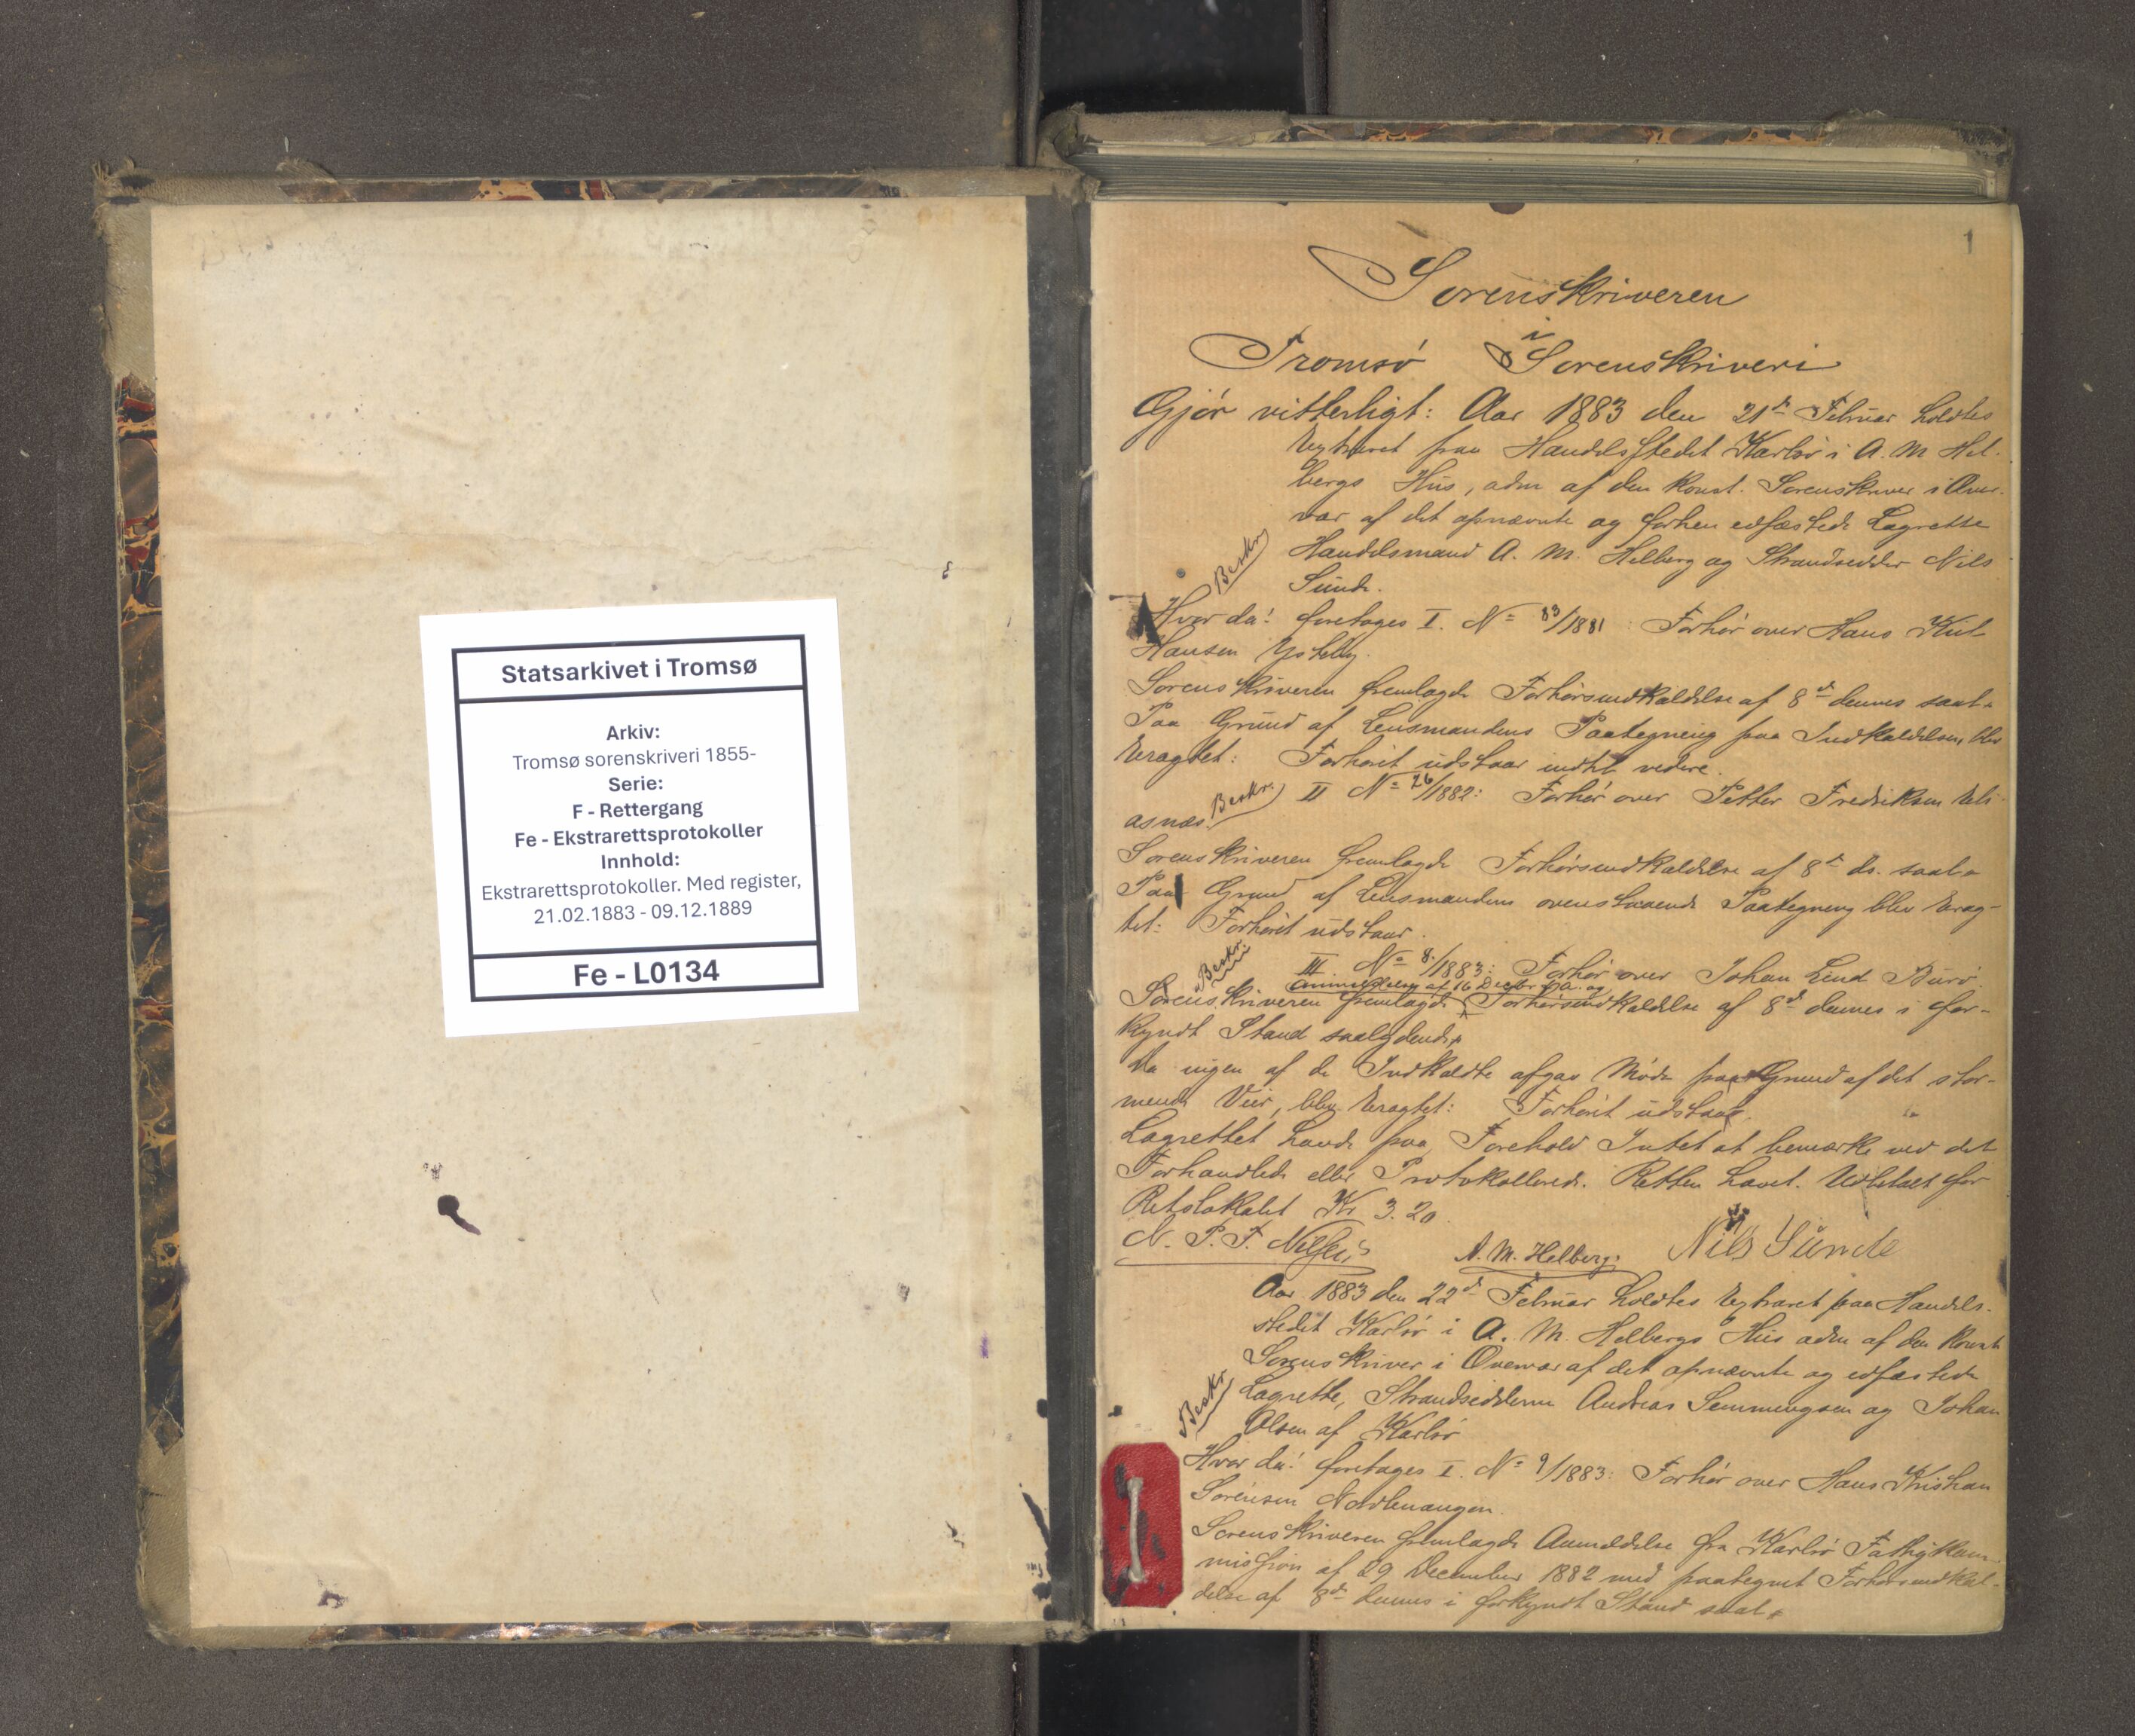 Statsarkivet i Tromsø
Arkiv:
Tromsø sorenskriveri 1855-
Serie:
F - Rettergang
Fe - Ekstrarettsprotokoller
Innhold:
Ekstrarettsprotokoller. Med register,
21.02.1883 - 09.12.1889
Fe - L0134
1
Sorenskriveren
i
Tromsø Sorenskriveri
Gjør vitterligt: Aar 1883 den 21de Februar holdtes
Extraret paa Handelsstedet Karlsø i A. M. Hel-
bergs Hus, adm af den konst. Sorenskriver i Over-
vær af det opnævnte og forhen edfæstede Lagrette
Handelsmand A. M. Helberg og Strandsidder Nils
Sunde.
Beskr.
Hvor da! foretoges I. No 83/1881: Forhør over Hans
Hansen
Sorenskriveren fremlagde Forhørsindkaldelse af 8de dennes saal.
Paa Grund af Lensmandens Paategning paa Indkaldelsen blev
Eragtet: Forhøret udstaar indtil videre.
Beskr. II No 26/1882: Forhør over Petter Fredriksen Eli-
asnæs.
Sorenskriveren fremlagde Forhørsindkaldelse af 8de ds. saal.
Paa Grund af Lensmandens ovenstaaende Paategning blev Erag-
tet: Forhøret udstaar.
Beskr. III. No 8/1883: Forhør over Johan Lind
Anmeldelse af 16 Decbr f. A. og
Sorenskriveren fremlagde Forhørsindkaldelse af 8de dennes i for-
kyndt Stand saalydende
Da ingen af de Indkaldte afgav Møde paa Grund af det stor-
mende Veir, blev Eragtet: Forhøret udstaar.
Lagrettet havde paa Forehold Intet at bemærke ved det
Forhandlede eller Protokollerede. Retten hævet. Udbetalt for
Retslokalet Kr 3.20
N. P. F. Nilsen A. M. Helberg. Nils Sunde
Aar 1883 den 22de Februar holdtes Extraret paa Handels-
stedet Karlsø i A. M. Helbergs Hus adm af den konst
Sorenskriver i Overvær af det opnævnte og edfæstede
Lagrette, Strandsidderne Andreas Semmingsen og Johan
Olsen af Karlsø
Beskr
Hvor da! foretoges I. No 9/1883: Forhør over Hans Kristian
Sørensen Nordlenangen.
Sorenskriveren fremlagde Anmeldelse fra Karlsø Fattigkom-
mission af 29 December 1882 med paategnet Forhørsindkal-
delse af 8de dennes i forkyndt Stand saal.